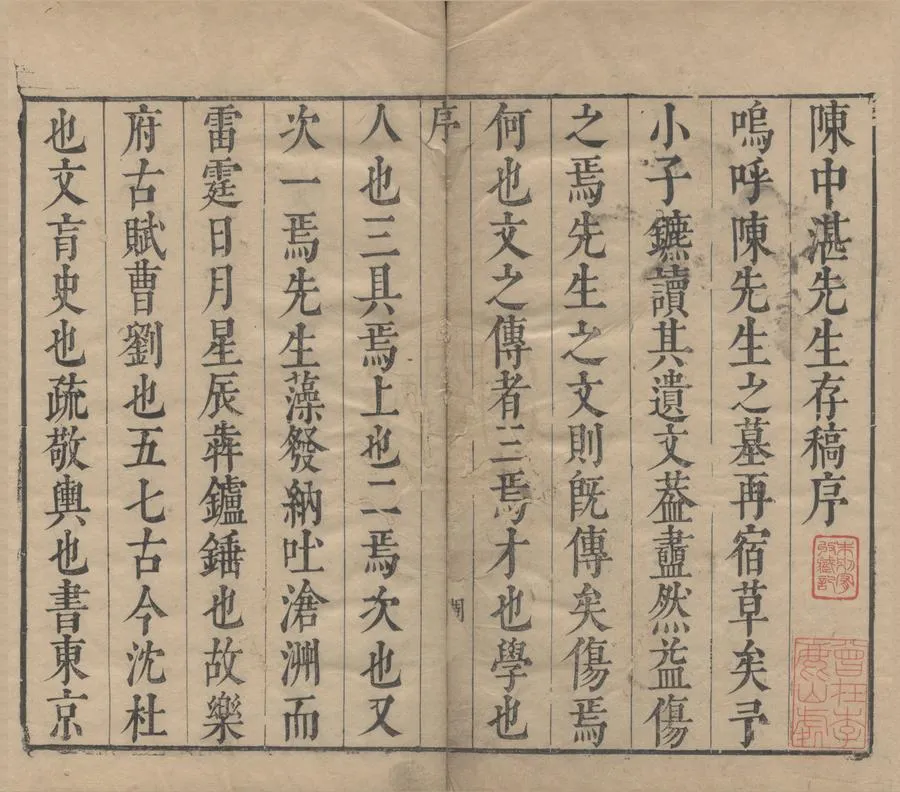 陳中湛先生存稿序
嗚呼陳先生之墓再宿草矣予
小子鑣讀其遺文葢衋然益傷
之焉先生之文則旣傳矣傷焉
何也文之傳者三焉才也學也
序
人也三具焉上也二焉次也又
次一焉先生藻發納吐滄溯而
雷霆日月星辰犇鑪錘也故樂
府古賦曹劉也五七古今沈杜
也文肓史也疏敬輿也書東京